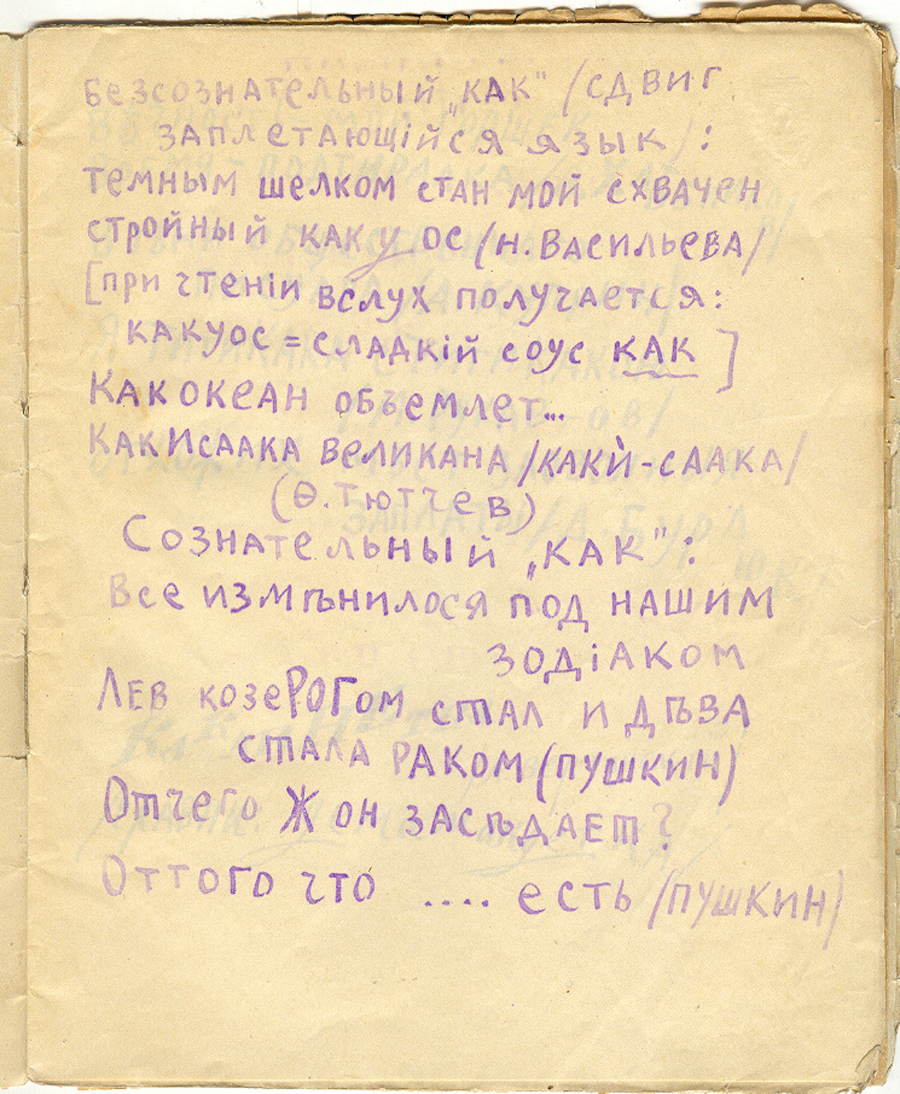 Безсознательный „как" /сдвиг
заплетающійся язык/:
Темным шелком стан мой схвачен
стройный как у ос /Н. Васильева/
[при чтеніи вслух получается:
какуос = сладкій соус как]
Как океан объемлет...
Как Исаака великана /каки́-саака/
(Ѳ. Тютчев)
Сознательный „как":
Все измѣнилося под нашим
зодіаком
Лев козеРОГом стал и дѣва
стала раком (Пушкин)
Отчего Ж он засѣдает?
Оттого что .... есть /Пушкин/